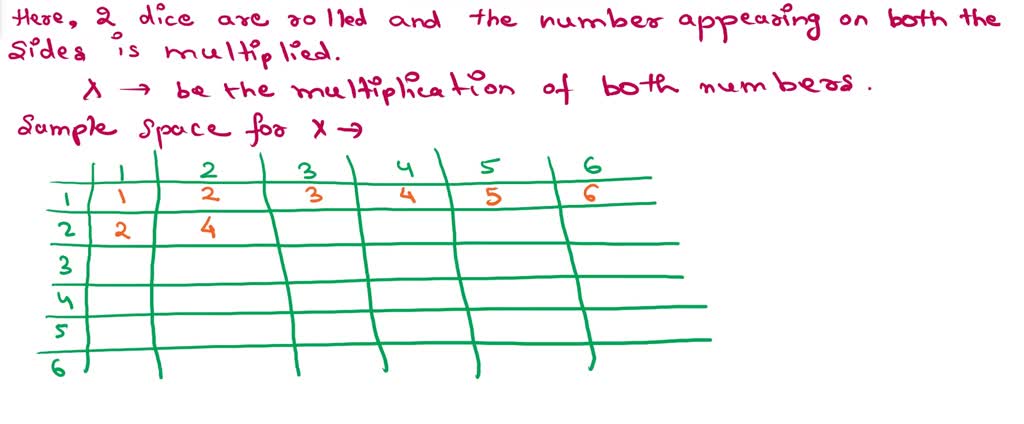 Here, 2 dice are rolled and the number appearing on both the
sides is multiplied.
X → be the multiplication of both numbers.
Sample space for X →
1 2 3 4 5 6
1 1 2 3 4 5 6
2 2 4
3
4
5
6